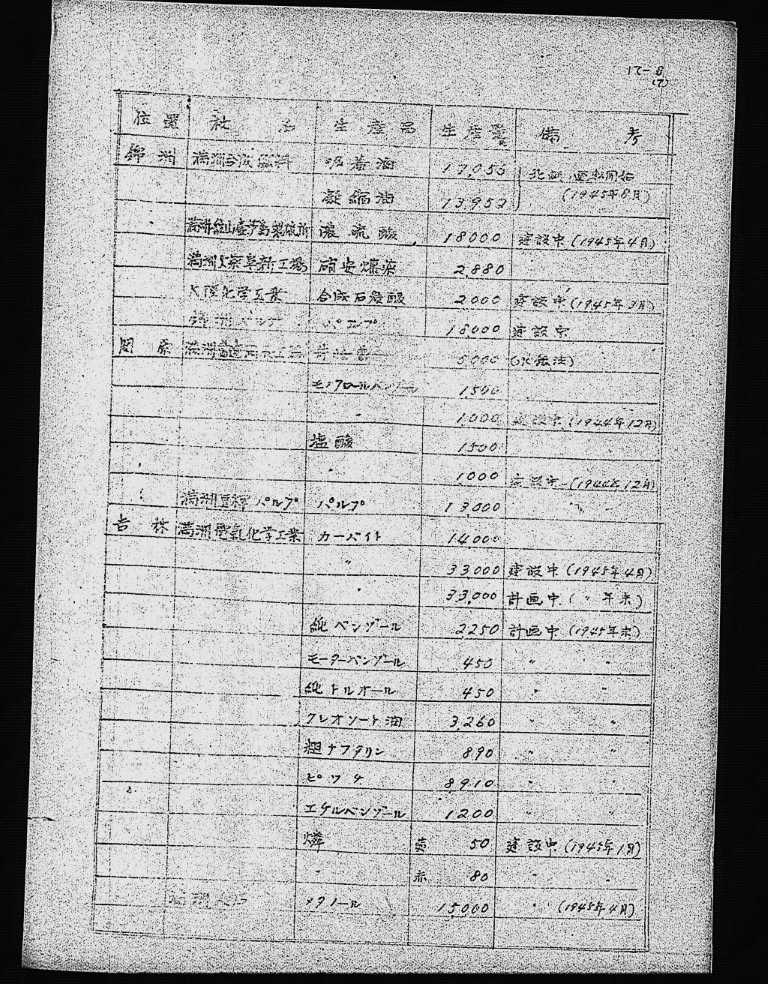 17-8
(2)
位置 社 名 生産品 生産量 備 考
錦洲 満洲合成燃料 吸着油 17,055 運転開始
凝縮油 13,952 (1945年6月)
濃硫酸 18000 建設中(1945年4月)
満洲火薬阜新工場 硝安爆薬 2,880
大陸化学工業 合成石炭酸 2,000 建設中(1945年3月)
錦洲パルプ パルプ 18,000 建設中
開原 5,000
モノクロールベンゾール 1500
〃 1,000 建設中(1944年12月)
塩酸 1500
〃 1000 建設中(1944年12月)
満洲豆稈パルプ パルプ 13,000
吉林 満洲電気化学工業 カーバイト 14,000
〃 33,000 建設中(1945年4月)
〃 33,000 計画中(〃年末)
純ベンゾール 2250 計画中(1945年末)
モーターベンゾール 450 〃 〃
純トルオール 450 〃 〃
クレオソート油 3,260 〃 〃
粗ナフタリン 890 〃 〃
ピッチ 8910 〃 〃
エチルベンゾール 1200 〃 〃
燐 黄 50 建設中(1945年1月)
〃 赤 80 〃 〃
メタノール 15,000 〃 (1945年4月)